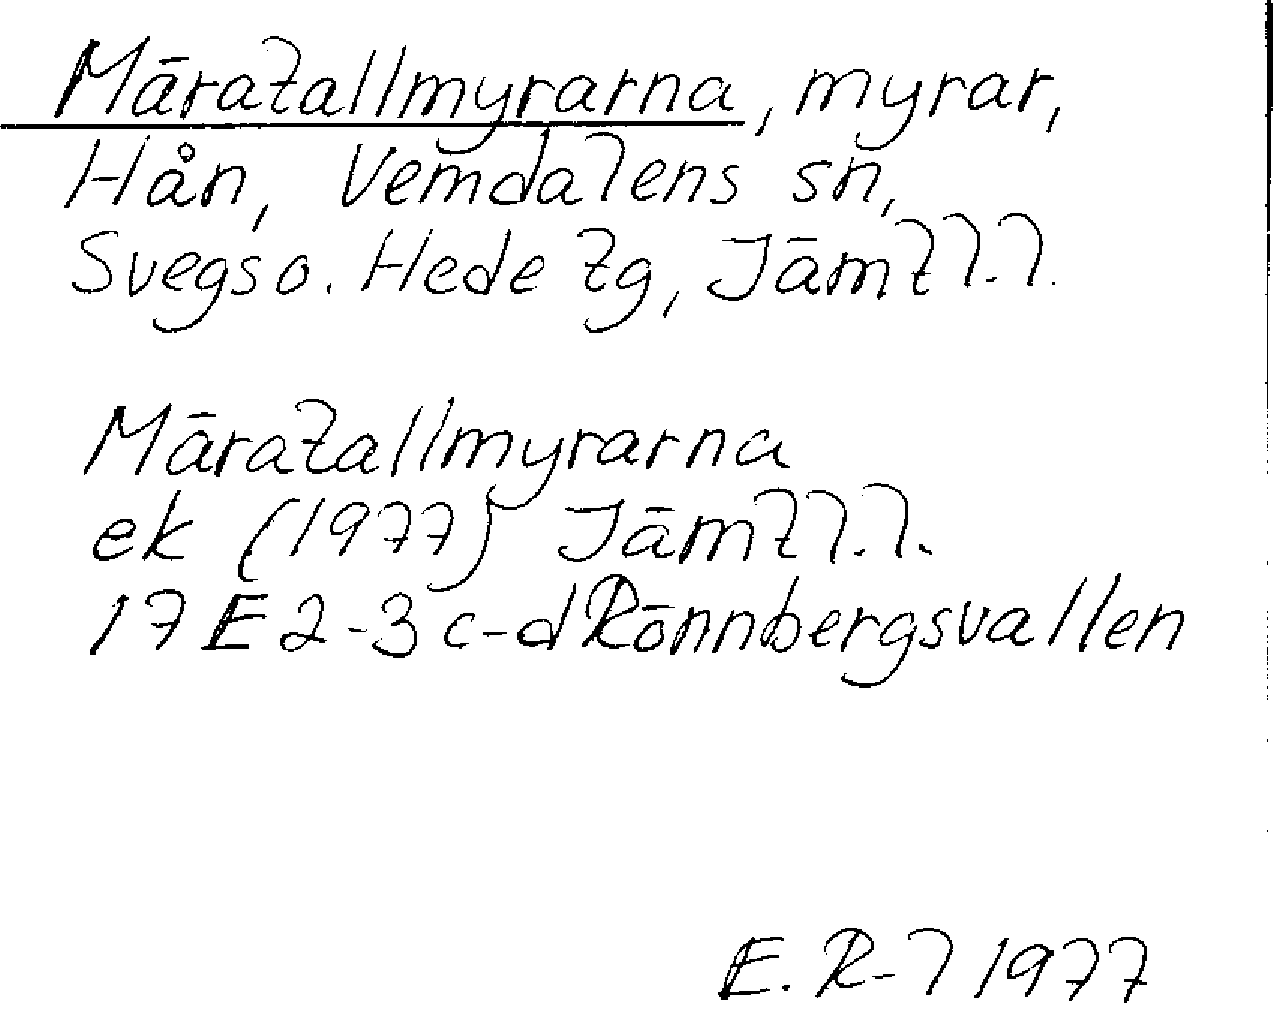 Märatallmyrarna, myrar,
Hån, Vemdalens sn,
Svegs o. Hede tg, Jämtl.l.
Märatallmyrarna
ek (1977) Jämtl.l.
17 E 2-3 c-d Rönnbergsvallen
E. R-l 1977